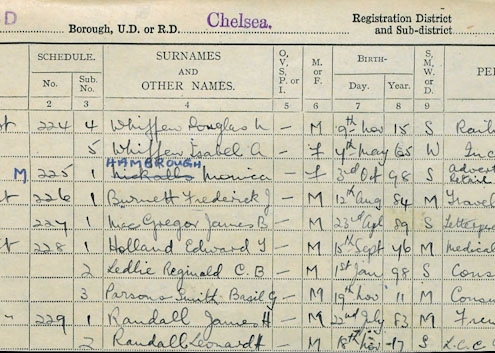 D Borough, U.D. or R.D. Chelsea. Registration District
and Sub-district
SCHEDULE. SURNAMES AND OTHER NAMES. O, V, S, P, or I M. or F. BIRTH— S, M, W, or D. PE
No. Sub. No. Day. Year.
2 3 4 5 6 7 8 9
224 4 Whiffen Douglas W — M 9th Nov 15 S Rail
5 Whiffen Isabel A — F 4th May 65 W Inc
HAMBROUGH
M 225 1 Nickolls Monica — F 3rd Oct 98 S
226 1 Burnett Frederick J — M 12th Aug 84 M Travel
227 1 MacGregor James B — M 23rd Apl 89 S Letterpre
228 1 Holland Edward T — M 15th Sept 46 M Medical
2 Ledlie Reginald C.B — M 1st Jan 98 S Cons
3 Parsons Smith Basil G — M 19th Nov 11 M Consu
" 229 1 Randall James H — M 22nd July 83 M Fren
2 Randall Leonard H — M 18th Nov 17 S L.C.C